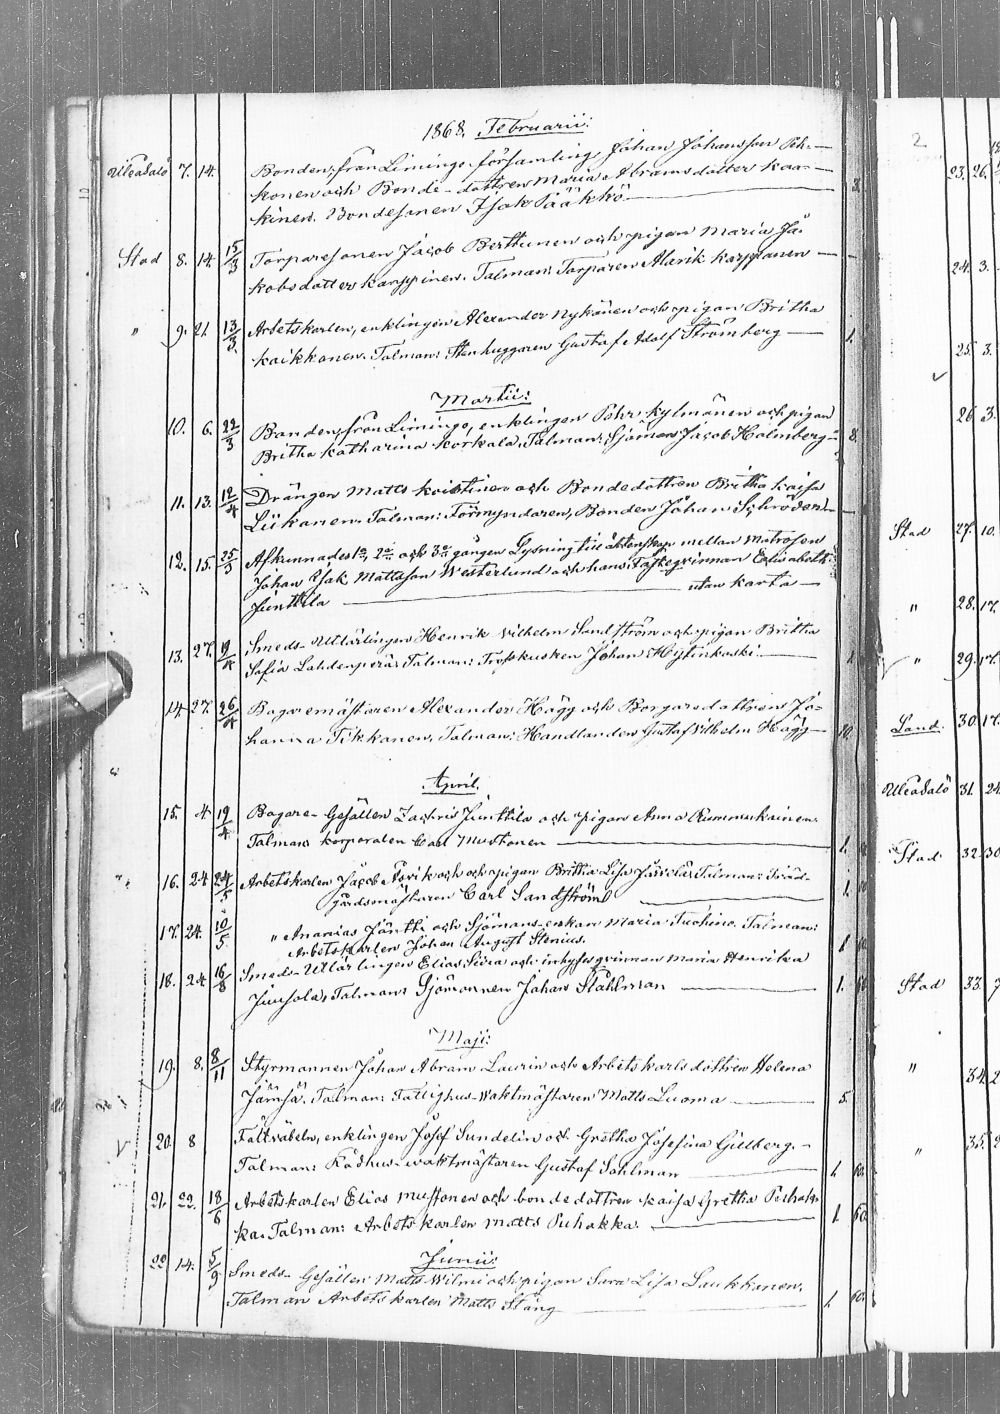 1868. Februarii:
Uleåsalo 7. 14. Bonden från Limingo församling, Johan Johansson Poh-
konen och Bonde-dottren Maria Abramsdotter Kaa-
kinen. Bondesonen Isak Pääkkö 3.
Stad 8. 14. 15/3 Torparesonen Jacob Berttunen och pigan Maria Ja-
kobsdotter Karppinen. Talman: Torparen Alarik Karppanen —
" 9. 21. 13/3. Arbetskarlen, enklingen Alexander Nykänen och pigan Britha
Kaikkonen. Talman: Stenhuggaren Gustaf Adolf Strömberg 1.
Martii:
10. 6. 22/3 Bonden från Limingo, enklingen Pehr Kylmänen och pigan
Britha Katharina Korkala. Talman: Sjöman Jacob Holmberg 8.
11. 13. 12/4 Drängen Matts Koistinen och Bondedottren Britha Kaisa
Liikanen. Talman: Förmyndaren, Bonden Johan Schröder —
12. 15. 25/3 Afkunnades 1a, 2a och 3a gången Lysning till äktenskap mellan Matrosen
Johan Isak Mattsson Westerlund och hans Fästeqvinnan Elisabeth
Junttila — utan karta —
13. 27. 19/4 Smeds-Utlärlingen Henrik Wilhelm Sandström och pigan Britha
Sofia Lahdenperä. Talman: Trosskusken Johan Myllinkoski 1.
14. 27. 26/4 Bagaremästaren Alexander Hägg och Borgaredottren Jo-
hanna Tikkanen. Talman: Handlanden Gustaf Wilhelm Hägg 10.
April.
15. 4 19/4 Bagare-Gesällen Zachris Junttila och pigan Anna Rummukainen.
Talman: korporalen Carl Mustonen 1.
16. 24 24/5 Arbetskarlen Jacob och pigan Britha Lisa Talman: Träd-
gårdsmästaren Carl Sandström 1.
17. 24. 10/5. " Ananias Jäntti och Sjömans-enkan Maria Tuohino. Talman:
Arbetskarlen Johan August Stenius. 1
18. 24 16/8 Smeds-Utlärlingen Elias och inhysesqvinnan Maria Henrika
Juusola. Talman: Sjömannen Johan Ståhlman 1.
Maji:
19. 8. 8/11 Styrmannen Johan Abram Laurin och Arbetskarlsdottren Helena
Jämsä. Talman: Fattighus-Waktmästaren Matts Luoma 5.
20. 8 Fältväbeln, enklingen Josef Sundelin och Gretha Josefina Gillberg.
Talman: Rådhus-waktmästaren Gustaf Sahlman 1. 60.
21. 22. 18/6 Arbetskarlen Elias Mustonen och bondedottren Kaisa Gretha Puhak-
ka. Talman: Arbetskarlen Matts Puhakka. 1 60.
Junii:
22 14. 5/9 Smeds-Gesällen Matts Wilmi och pigan Sara Lisa Laukkanen.
Talman Arbetskarlen Matts Stång 1. 60.
2
23. 26.
24. 3.
25. 3.
26. 3
Stad 27. 10.
" 28. 17.
" 29. 17.
Land. 30. 17.
Uleåsalo 31. 24
Stad 32. 30
Stad 33. 7
" 34. 2
" 35. 2